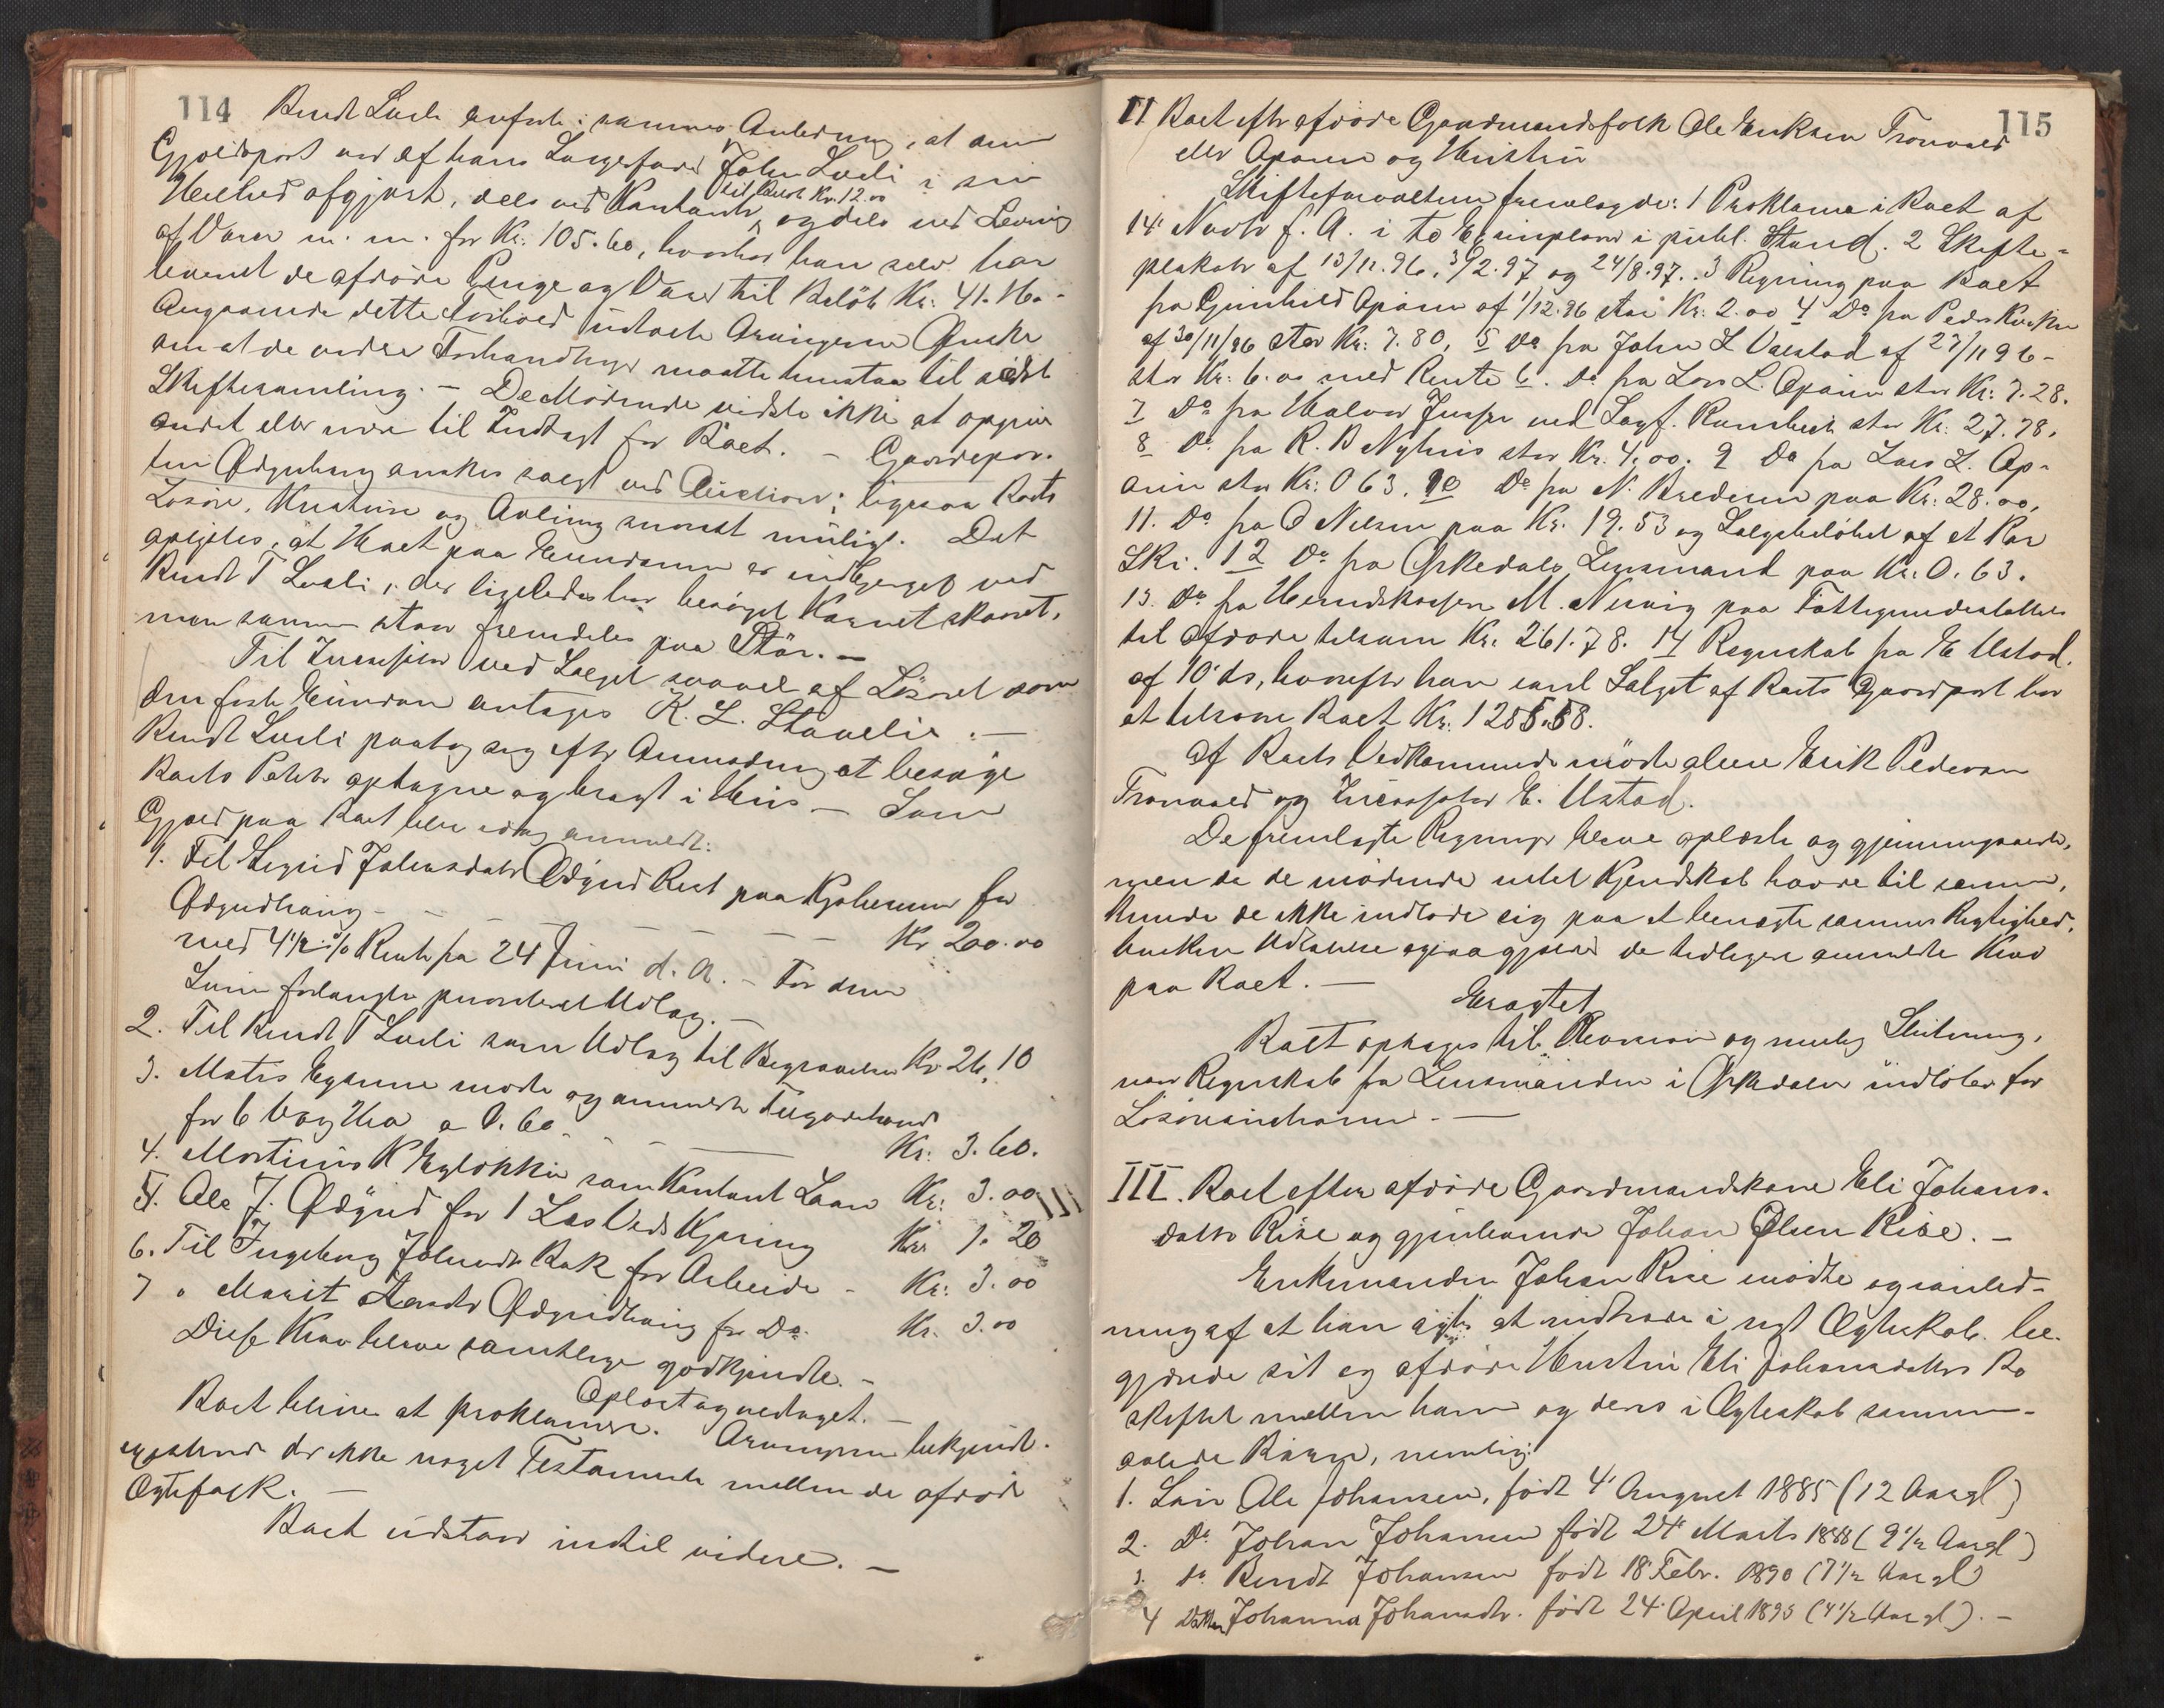 114
Rendt Lueli anførte i sammes Anledning, at denne
Gjældspost var af hans Laugefar John Lueli i sin
Helhed afgjort, dels ved Kontant til Rest Kr. 12.00 og dels ved Levering
af Varer m. m. for Kr. 105.60, hvorhos han selv har
leveret de afdøde Penge og Varer til Beløb Kr. 41.16.-
Angaaende dette Forhold udtalte Arvingerne Ønske
om at de videre Forhandlinger maatte henstaa til sidste
Skiftesamling. — De Mødende vidste ikke at opgive
andet eller mere til Indtægt for Boet. — Gaardpar-
ten Ødgudhaug ønskes solgt ved Auction; ligesaa Boets
Løsøre, Kreature og Avling snarest muligt. Det
oplystes, at Høet paa Eiendommen er indbjerget ved
Rendt T Lueli, der ligeledes har besørget Kornet skaaret,
men samme staar fremdeles paa Stør. —
Til Incassator ved Salget saavel af Løsøret som
den faste Eiendom antages K. L. Stavelie. —
Rendt Lueli paatog sig efter Anmodning at besørge
Boets Poteter optagne og bragt i Hus — Som
Gjæld paa Boet blev idag anmeldt:
1. Til Sigrid Johnsdatter Ødgud Rest paa Kjøbesum for
Ødgudhaug - - - - - - Kr 200.00
med 4½ % Rente fra 24 Juni d. A. — For denne
Sum forlangtes prioriteret Udlæg. —
2. Til Rendt T Lueli som Udlæg til Begravelsen Kr 26,10
3. Mats Egsmo mødte og anmeldte Tilgodehavende
for 6 Vog Hø a 0.60 - - Kr. 3.60.
4. Martinus K Egløkkin som Kontant Laan Kr: 3.00
5. Ole J. Ødgud for 1 Læs Veds Kjøring Kr 1.20
6. Til Ingeborg Johnsdt Bak for Arbeide - Kr: 3.00
7 " Marit Arntsdtr Ødgudhaug for Do. Kr. 3.00
Disse Krav bleve samtlige godkjendte. —
Oplæst og vedtaget. —
Boet bliver at proklamere. Arvingerne bekjendt
existerer der ikke noget Testamente mellem de afdøde
Ægtefolk. —
Boet udstaar indtil videre. —
115
II Boet efter afdøde Gaardmandsfolk Ole Eriksen Tronvold
eller Opaunn og Hustru
Skifteforvalteren fremlagde: 1 Proklama i Boet af
14' Novbr f. A. i to Exemplarer i publ. Stand. 2 Skifte-
plakater af 13/11.96, 3/2.97 og 24/8.97. 3 Regning paa Boet
fra Gunhild Opaunn af 1/12.96 stor Kr: 2.00 4 Do fra Peder Kvaken
af 30/11/96 stor Kr: 7.80, 5 Do fra John L Valstad af 27/11 96-
stor Kr: 6.00 med Rente 6. Do fra Lars L. Opaunn stor Kr: 7.28.
7 Do fra Halvor Jensen ved Sagf. Rambech stor Kr: 27.78,
8 Do fra R. B Nyhus stor Kr. 4.00. 9 Do fra Lars L. Op-
aunn stor Kr: 0 63. 10 Do fra N. Bredesen paa Kr: 28.00,
11. Do fra O Nilsen paa Kr. 19.53 og Salgsbeløbet af et Par
Ski. 12 Do fra Ørkedals Lensmand paa Kr: 0.63.
13. Do fra Herredskasserer M. Nervig paa Fattigunderstøttelse
til afdøde tilsam Kr: 261.78. 14 Regnskab fra E Ustad
af 10' ds, hvorefter han iand Salget af Boets Gaardpart har
at tilsvare Boet Kr. 1255.58.
Af Boets Vedkommende mødte alene Erik Pedersen
Tronvold og Incassator E. Ustad.
De fremlagte Regninger bleve oplæste og gjennemgaaede,
men da de mødende intet Kjendskab havde til samme,
kunde de ikke indlade sig paa at benægte sammes Rigtighed,
hvilken Udtalelse ogsaa gjælder de tidligere anmeldte Krav
paa Boet. —
Eragtet
Boet optages til Revision og mulig Slutning,
naar Regnskab fra Lensmanden i Ørkedalen indløber for
Løsøreauctionen. —
III. Boet efter afdøde Gaardmandskone Eli Johans-
datter Rise og gjenlevende Johan Olsen Rise. —
Enkemanden Johan Rise mødte og i anled-
ning af at han agter at indtræde i nyt Ægteskab be-
gjærede sit og afdøde Hustru Eli Johansdatters Bo
skiftet mellem ham og deres i Ægteskab sammen-
avlede Børn, nemlig:
1. Søn Ole Johansen, født 4' August 1885 (12 Aargl)
2. Do Johan Johansen født 24' Marts 1888 (9½ Aargl)
3. do Rendt Johansen født 18' Febr. 1890 (7½ Aargl)
4 Datter Johanna Johansdtr. født 24' April 1893 (4½ Aargl). —